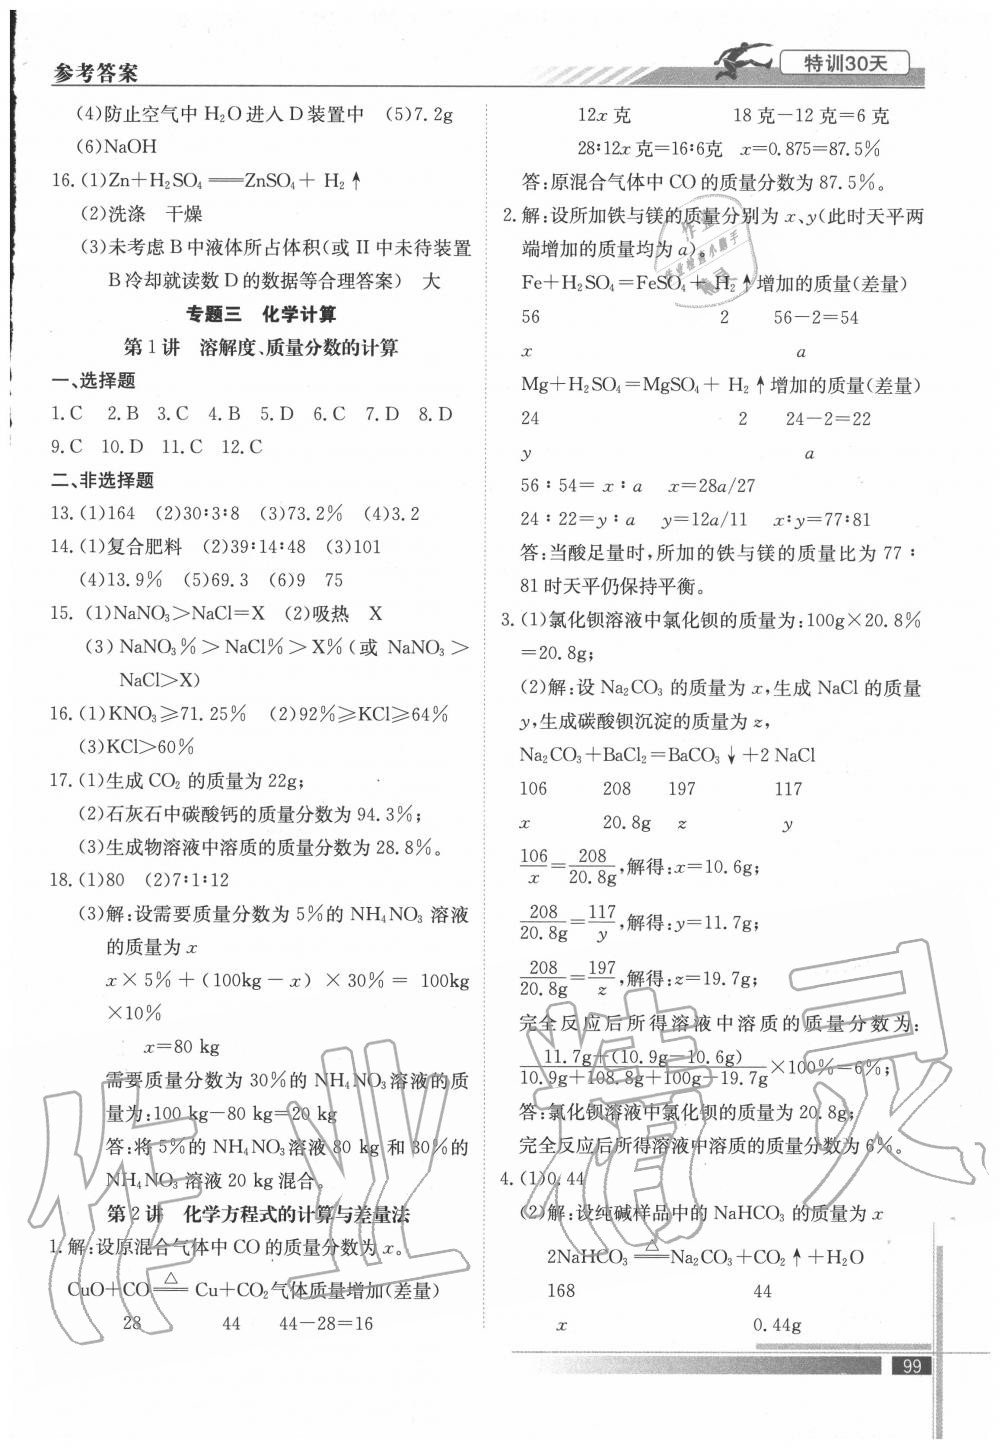 参考答案
特训30天
(4)防止空气中 H₂O 进入 D 装置中 (5)7.2g
(6)NaOH
16.(1)Zn+H₂SO₄═══ZnSO₄+ H₂↑
(2)洗涤 干燥
(3)未考虑 B 中液体所占体积(或 II 中未待装置
B 冷却就读数 D 的数据等合理答案) 大
专题三 化学计算
第 1 讲 溶解度、质量分数的计算
一、选择题
1.C 2.B 3.C 4.B 5.D 6.C 7.D 8.D
9.C 10.D 11.C 12.C
二、非选择题
13.(1)164 (2)30∶3∶8 (3)73.2% (4)3.2
14.(1)复合肥料 (2)39∶14∶48 (3)101
(4)13.9% (5)69.3 (6)9 75
15. (1)NaNO₃>NaCl=X (2)吸热 X
(3) NaNO₃%>NaCl%>X%(或 NaNO₃>
NaCl>X)
16.(1)KNO₃≥71.25% (2)92%≥KCl≥64%
(3)KCl>60%
17.(1)生成 CO₂ 的质量为 22g;
(2)石灰石中碳酸钙的质量分数为 94.3%;
(3)生成物溶液中溶质的质量分数为 28.8%。
18.(1)80 (2)7∶1∶12
(3)解:设需要质量分数为 5%的 NH₄NO₃ 溶液
的质量为 x
x×5%+(100kg-x)×30%= 100kg
×10%
x=80 kg
需要质量分数为 30%的 NH₄NO₃溶液的质
量为:100 kg-80 kg=20 kg
答:将 5%的 NH₄NO₃溶液 80 kg 和 30%的
NH₄NO₃ 溶液 20 kg 混合。
第 2 讲 化学方程式的计算与差量法
1.解:设原混合气体中 CO 的质量分数为 x。
CuO+CO══△══Cu+CO₂气体质量增加(差量)
28 44 44-28=16
12x 克 18 克-12 克=6 克
28∶12x 克=16∶6克 x=0.875=87.5%
答:原混合气体中 CO 的质量分数为 87.5%。
2.解:设所加铁与镁的质量分别为 x、y(此时天平两
端增加的质量均为 a)。
Fe+H₂SO₄=FeSO₄+ H₂↑增加的质量(差量)
56 2 56-2=54
x a
Mg+H₂SO₄=MgSO₄+ H₂↑增加的质量(差量)
24 2 24-2=22
y a
56∶54= x∶a x=28a/27
24∶22=y∶a y=12a/11 x∶y=77∶81
答:当酸足量时,所加的铁与镁的质量比为 77∶
81 时天平仍保持平衡。
3.(1)氯化钡溶液中氯化钡的质量为:100g×20.8%
=20.8g;
(2)解:设 Na₂CO₃ 的质量为 x,生成 NaCl 的质量
y,生成碳酸钡沉淀的质量为 z,
Na₂CO₃+BaCl₂=BaCO₃↓+2 NaCl
106 208 197 117
x 20.8g z y
106/x=208/20.8g,解得:x=10.6g;
208/20.8g=117/y,解得:y=11.7g;
208/20.8g=197/z,解得:z=19.7g;
完全反应后所得溶液中溶质的质量分数为:
11.7g+(10.9g-10.6g)/10.9g+108.8g+100g-19.7g×100%=6%;
答:氯化钡溶液中氯化钡的质量为 20.8g;
完全反应后所得溶液中溶质的质量分数为 6%。
4.(1)0.44
(2)解:设纯碱样品中的 NaHCO₃ 的质量为 x
2NaHCO₃══△══Na₂CO₃+CO₂↑+H₂O
168 44
x 0.44g
99
作业精灵